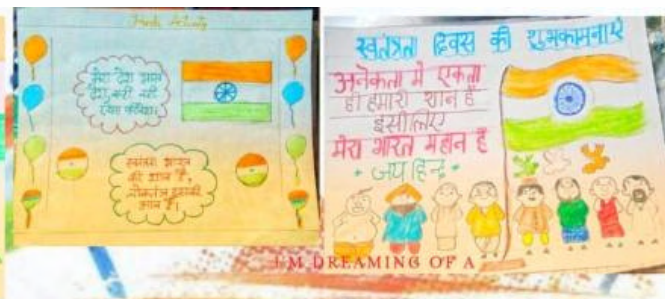 Hindi Activity
मेरा देश
स्वतंत्रता भारत
की शान है,
लोकतंत्र इसकी
जान है।
स्वतंत्रता दिवस की शुभकामनाएं
अनेकता में एकता
ही हमारी शान है
इसीलिए
मेरा भारत महान है
जय हिन्द
I'M DREAMING OF A